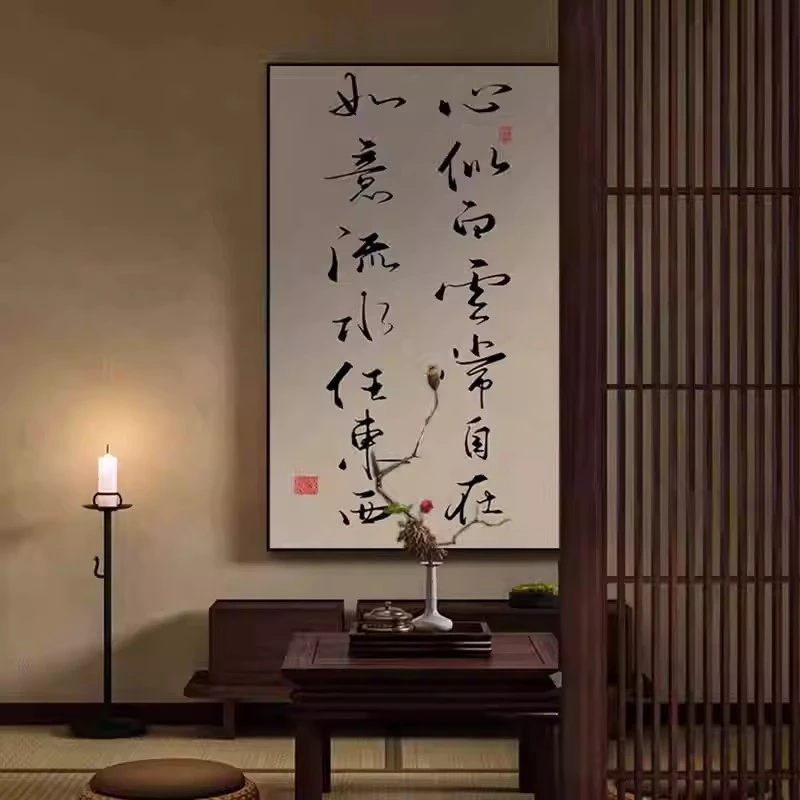 心似白雲常自在
如意流水任東西